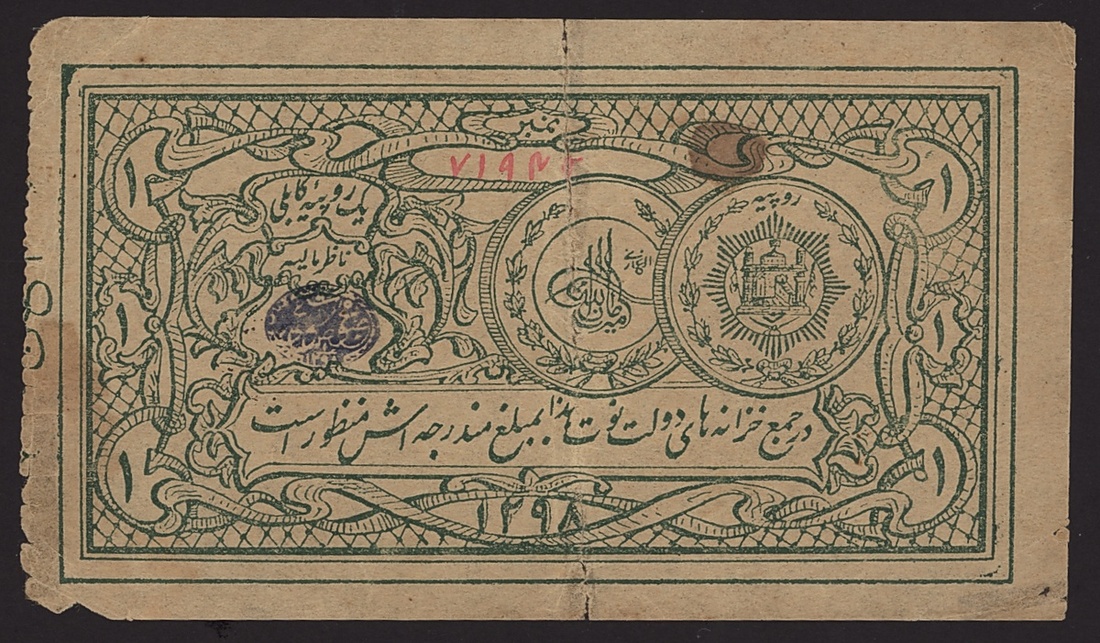 نمبر
۷۱۹۴
یک روپیهٔ کابلی
ناظر مالیه
روپیه
در جمع خزانه های دولت نوت هذا بمبلغ مندرجه اش منظور است
۱۲۹۸
۱
۱
۱
۱
۱
۱